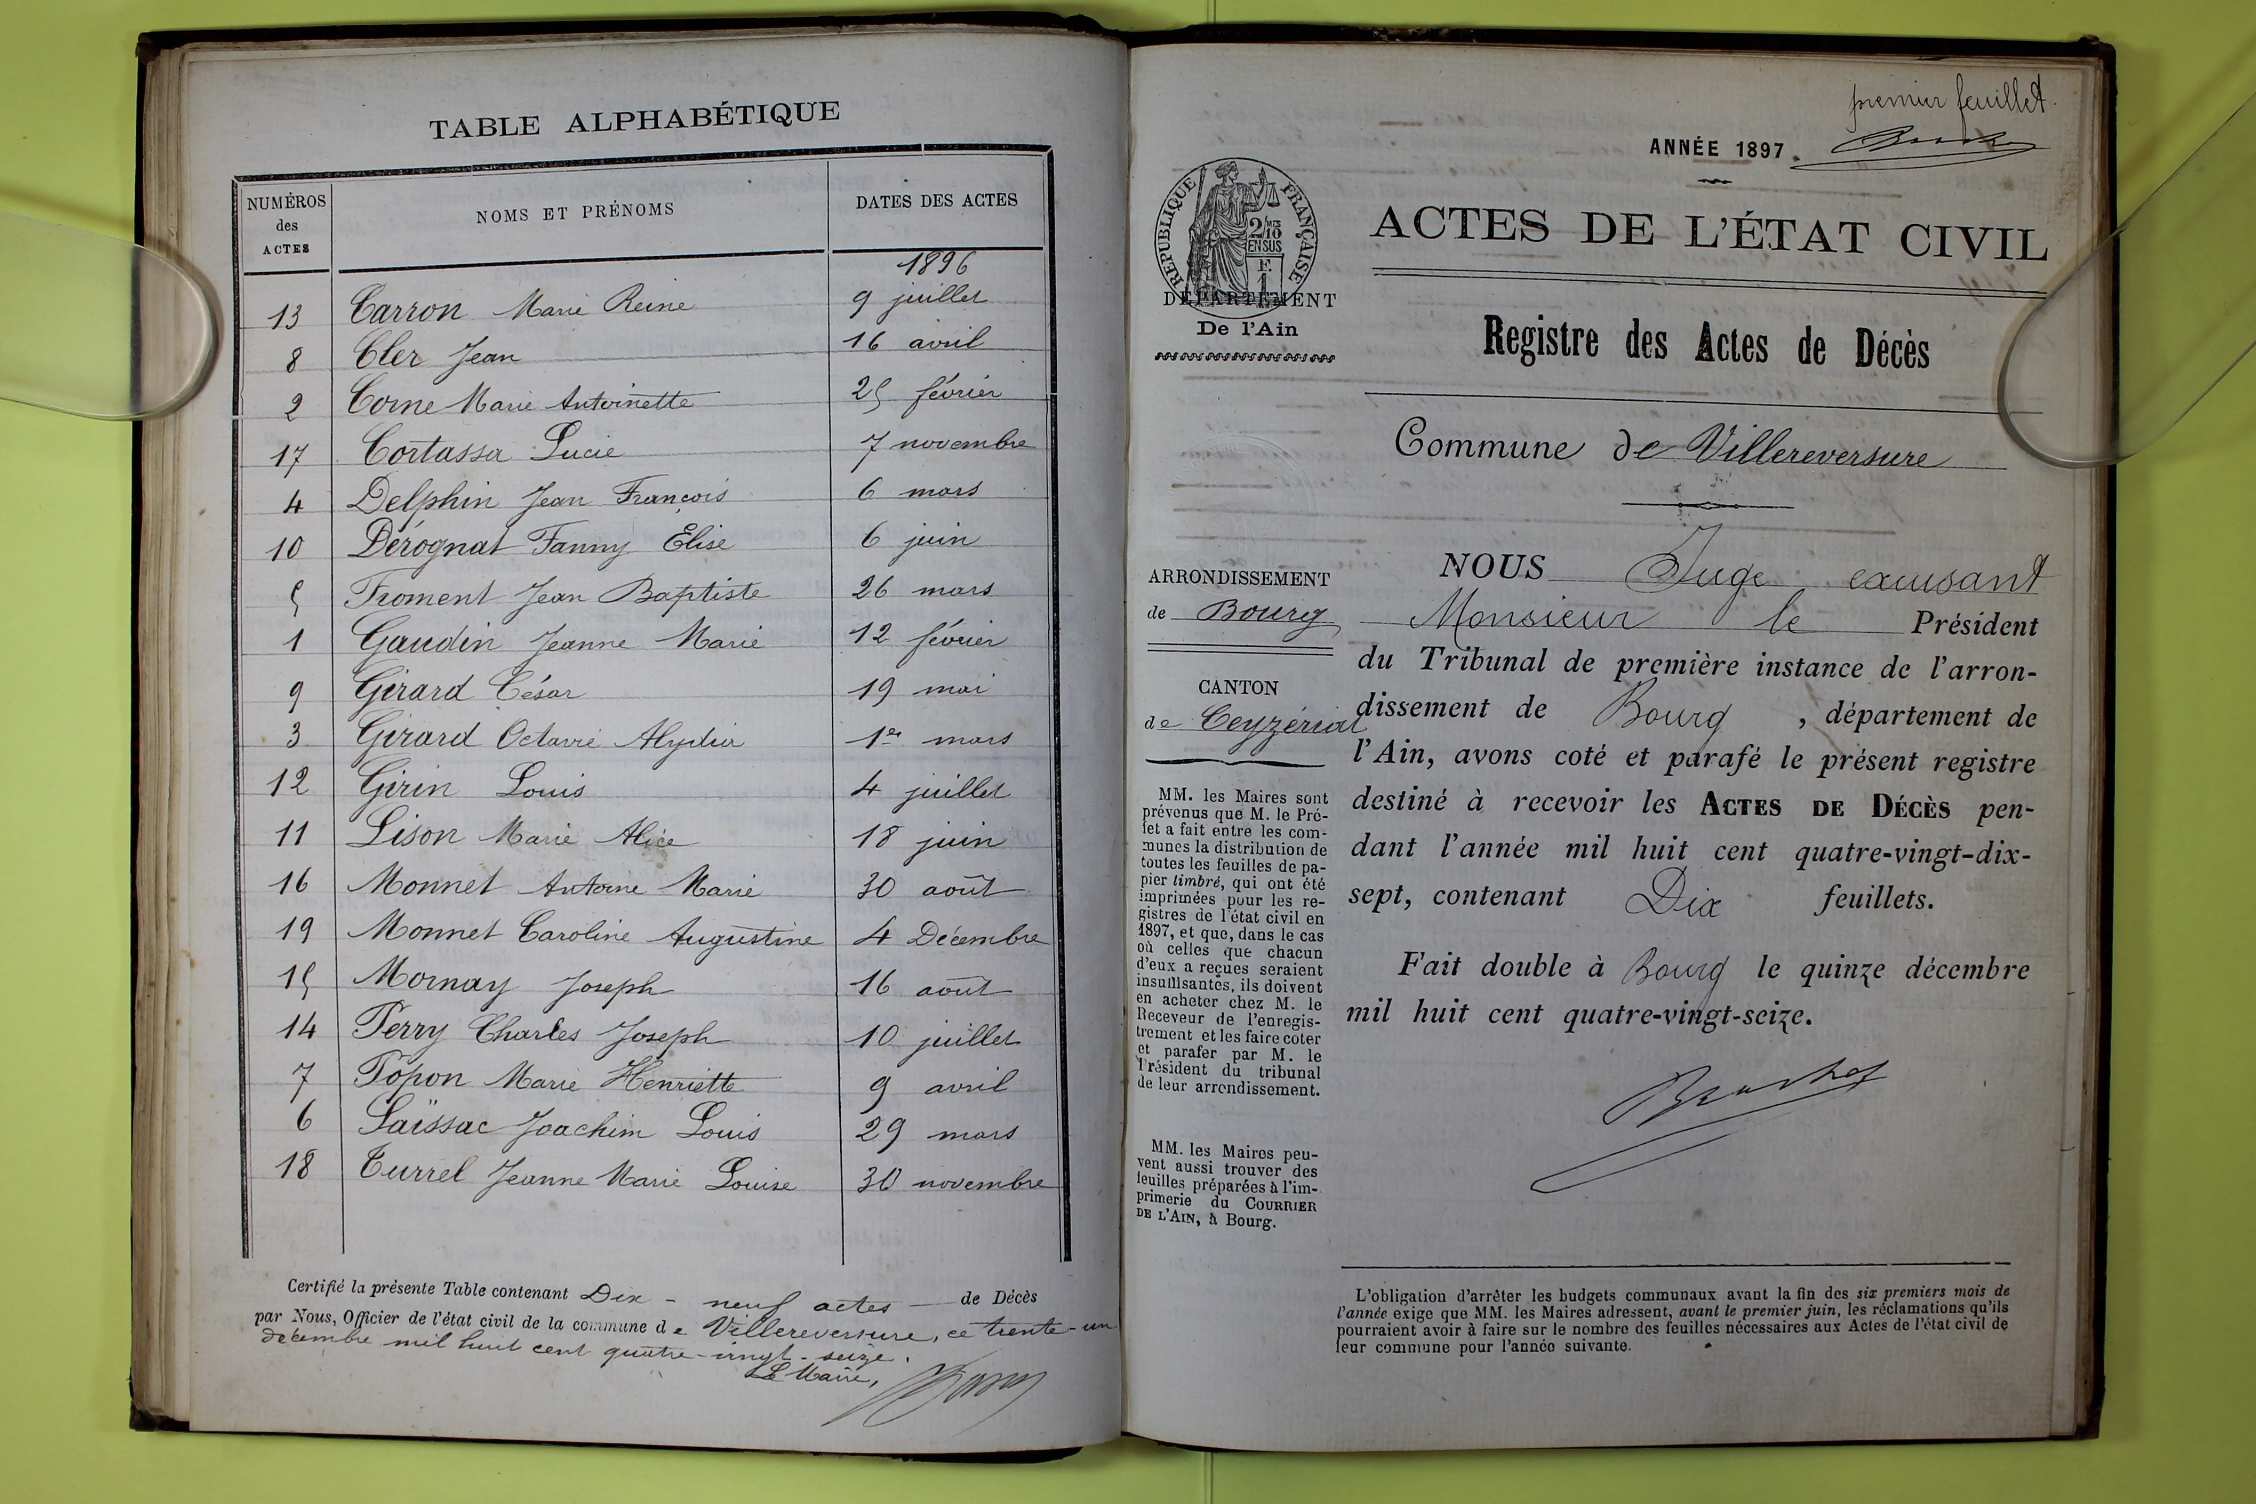 TABLE ALPHABÉTIQUE
NUMÉROS des ACTES
NOMS ET PRÉNOMS
DATES DES ACTES
1896
13 Carron Marie Reine 9 juillet
8 Cler Jean 16 avril
2 Corne Marie Antoinette 25 février
17 Cortassa Lucie 7 novembre
4 Delphin Jean François 6 mars
10 Dérognat Fanny Elise 6 juin
5 Froment Jean Baptiste 26 mars
1 Gaudin Jeanne Marie 12 février
9 Girard César 19 mai
3 Girard Octavie Alydia 1er mars
12 Girin Louis 4 juillet
11 Lison Marie Alice 18 juin
16 Monnet Antoine Marie 30 août
19 Monnet Caroline Augustine 4 Décembre
15 Mornay Joseph 16 août
14 Perry Charles Joseph 10 juillet
7 Popon Marie Henriette 9 avril
6 Saïssac Joachim Louis 29 mars
18 Turrel Jeanne Marie Louise 30 novembre
Certifié la présente Table contenant Dix-neuf actes de Décès
par Nous, Officier de l'état civil de la commune de Villereversure, ce trente-un
décembre mil huit cent quatre-vingt-seize.
Le Maire,
premier feuillet.
ANNÉE 1897
RÉPUBLIQUE FRANÇAISE
2/10
EN SUS
F.
1
DÉPARTEMENT
De l'Ain
ACTES DE L'ÉTAT CIVIL
Registre des Actes de Décès
Commune de Villereversure
ARRONDISSEMENT
de Bourg
CANTON
de Ceyzériat
MM. les Maires sont
prévenus que M. le Pré-
fet a fait entre les com-
munes la distribution de
toutes les feuilles de pa-
pier timbré, qui ont été
imprimées pour les re-
gistres de l'état civil en
1897, et que, dans le cas
où celles que chacun
d'eux a reçues seraient
insuffisantes, ils doivent
en acheter chez M. le
Receveur de l'enregis-
trement et les faire coter
et parafer par M. le
Président du tribunal
de leur arrondissement.
MM. les Maires peu-
vent aussi trouver des
feuilles préparées à l'im-
primerie du COURRIER
DE L'AIN, à Bourg.
NOUS Juge excusant
Monsieur le Président
du Tribunal de première instance de l'arron-
dissement de Bourg, département de
l'Ain, avons coté et parafé le présent registre
destiné à recevoir les ACTES DE DÉCÈS pen-
dant l'année mil huit cent quatre-vingt-dix-
sept, contenant Dix feuillets.
Fait double à Bourg le quinze décembre
mil huit cent quatre-vingt-seize.
L'obligation d'arrêter les budgets communaux avant la fin des six premiers mois de
l'année exige que MM. les Maires adressent, avant le premier juin, les réclamations qu'ils
pourraient avoir à faire sur le nombre des feuilles nécessaires aux Actes de l'état civil de
leur commune pour l'année suivante.